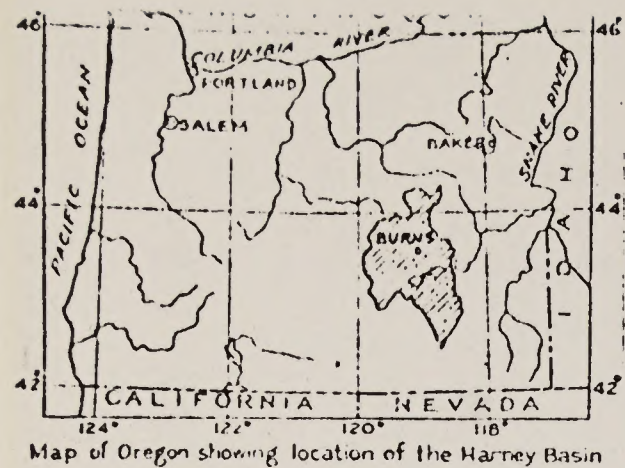 46° 46°
COLUMBIA RIVER
PORTLAND
PACIFIC OCEAN
SALEM
BAKER
SNAKE RIVER
IDAHO
44° 44°
BURNS
42° 42°
CALIFORNIA NEVADA
124° 122° 120° 118°
Map of Oregon showing location of the Harney Basin